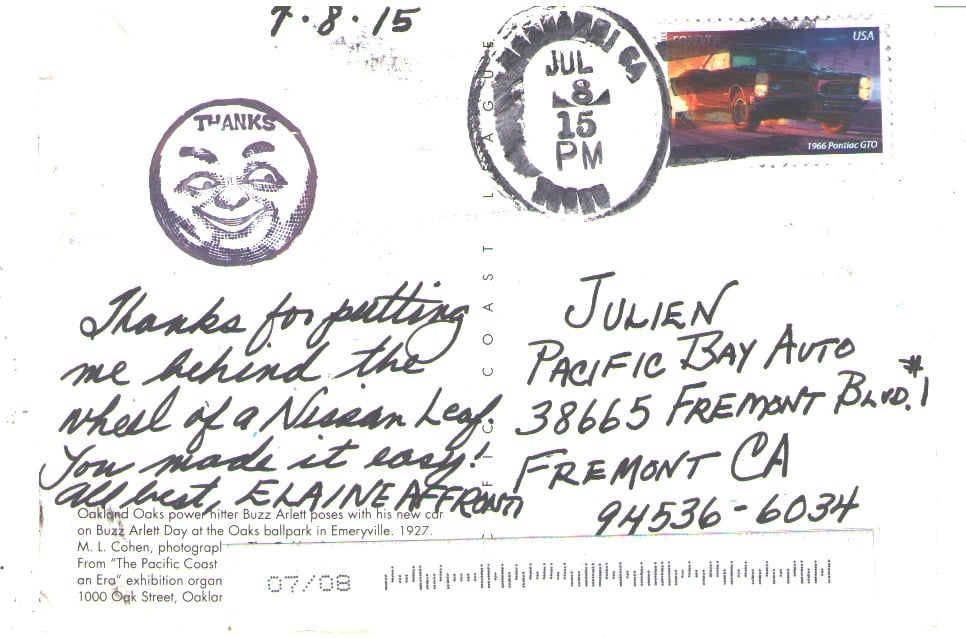 7.8.15
THANKS
CA
JUL
8
15
PM
FOREVER
USA
1966 Pontiac GTO
COAST LEAGUE
Thanks for putting
me behind the
wheel of a Nissan Leaf.
You made it easy!
All best, ELAINE AFFRONTI
JULIEN
PACIFIC BAY AUTO
38665 FREMONT BLVD. #1
FREMONT CA
94536-6034
Oakland Oaks power hitter Buzz Arlett poses with his new car
on Buzz Arlett Day at the Oaks ballpark in Emeryville. 1927.
M. L. Cohen, photograph
From "The Pacific Coast
an Era" exhibition organ
1000 Oak Street, Oaklan
07/08